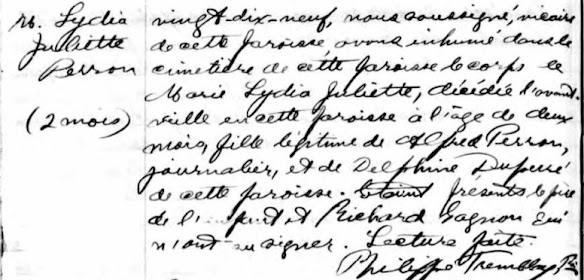 M. Lydia
Juliette
Perron
(2 mois)
vingt-dix-neuf, nous soussigné, vicaire
de cette paroisse avons inhumé dans le
cimetière de cette paroisse le corps de
Marie Lydia Juliette, décédée l'avant-
veille en cette paroisse à l'âge de deux
mois, fille légitime de Alfred Perron,
journalier, et de Delphine Dufour
de cette paroisse. Etaient présents le père
de l'enfant et Richard Gagnon qui
n'ont su signer. Lecture faite.
Philippe Tremblay, Ptr